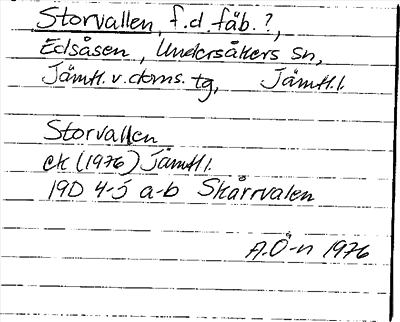 Storvallen, f.d. fäb. ?,
Edsåsen, Undersåkers sn,
Jämtl. v. doms. tg, Jämtl. l.
Storvallen
ek (1976) Jämtl l.
19D 4-5 a-b Skårrvalen
A.Ö-n 1976